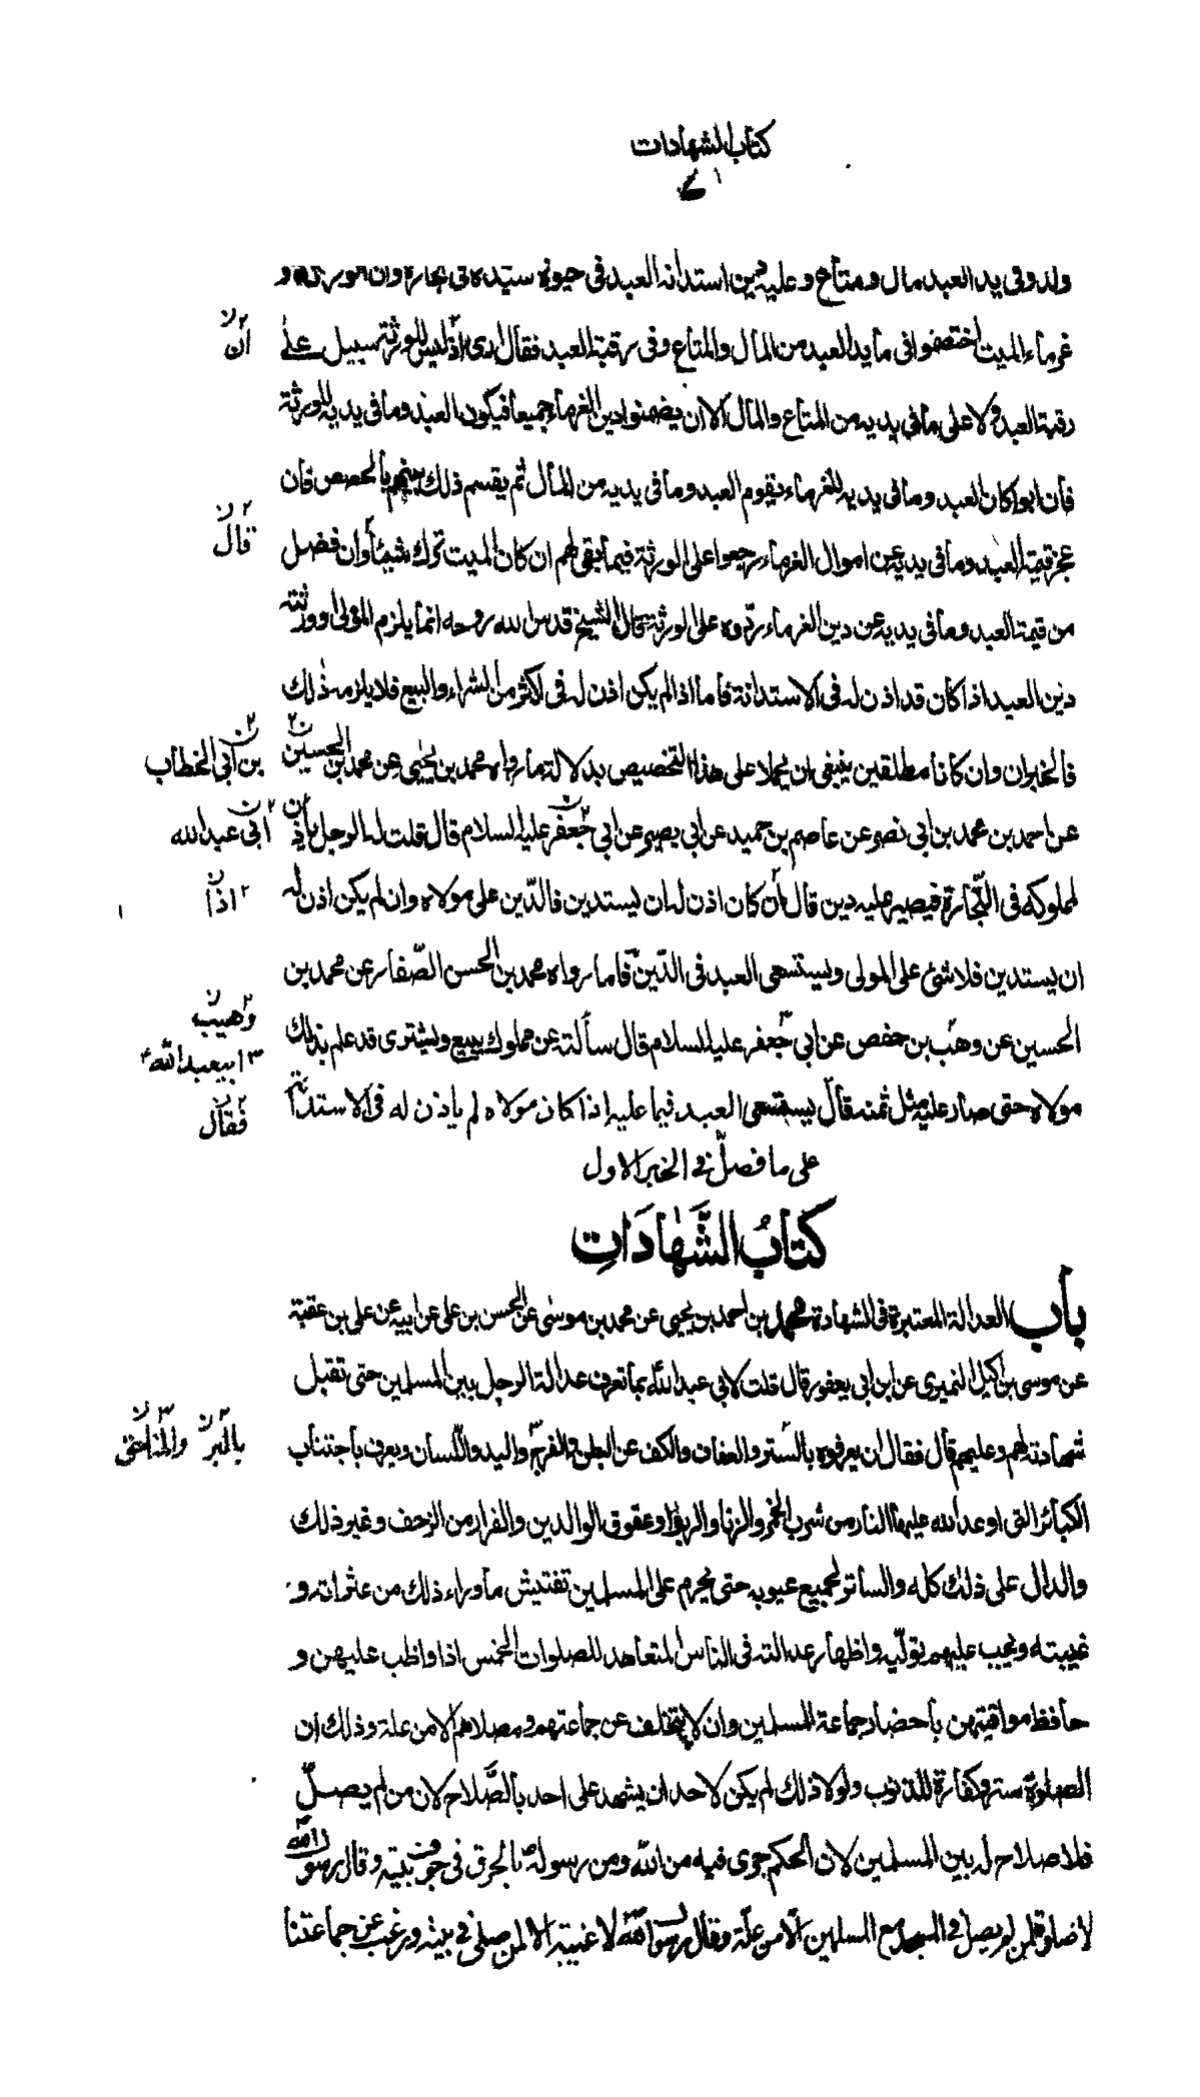 كتاب الشهادات
ولد وفى يد العبد مال ومتاع وعليه دين استدانه العبد فى حيوة سيده فى تجارة وان الورثة و
غرماء الميت اختصموا فى ما يد العبد من المال والمتاع وفى رقبة العبد فقال ارى اذ ليس للورثة سبيل على
رقبة العبد ولا على ما فى يديه من المتاع والمال الا ان يضمنوا دين الغرماء جميعا فيكون العبد وما فى يديه للورثة
فان ابوا كان العبد وما فى يديه للغرماء يقوم العبد وما فى يديه من المال ثم يقسم ذلك بينهم بالحصص فان
عجز قيمة العبد وما فى يديه عن اموال الغرماء رجعوا على الورثة فيما بقى لهم ان كان الميت ترك شيئا وان فضل
من قيمة العبد وما فى يديه عن دين الغرماء ردّوه على الورثة قال الشيخ قدس الله روحه انما يلزم المولى او ورثته
دين العبد اذا كان قد اذن له فى الاستدانة فاما اذا لم يكن اذن له فى اكثر من الشراء والبيع فلا يلزمه ذلك
فالخبران وان كانا مطلقين ينبغى ان يحملا على هذا التخصيص بدلالة ما رواه محمد بن يحيى عن محمد بن الحسين
عن احمد بن محمد بن ابى نصر عن عاصم بن حميد عن ابى بصير عن ابى جعفر عليه السلام قال قلت له الرجل يأذن
لمملوكه فى التّجارة فيصير عليه دين قال ان كان اذن له ان يستدين فالدّين على مولاه وان لم يكن اذن له
ان يستدين فلا شئ على المولى ويستسعى العبد فى الدّين فاما ما رواه محمد بن الحسن الصّفار عن محمد بن
الحسين عن وهب بن حفص عن ابى جعفر عليه السلام قال سألته عن مملوك يبيع ويشترى قد علم بذلك
مولاه حتى صار عليه مثل ثمنه قال يستسعى العبد فيما عليه إذا كان مولاه لم يأذن له فى الاستدانة
على ما فصّل فى الخبر الاول
كتابُ الشَّهادَاتِ
باب العدالة المعتبرة فى الشهادة محمد بن احمد بن يحيى عن محمد بن موسى عن الحسن بن على عن ابيه عن على بن عقبة
عن موسى بن اكيل النميرى عن ابن ابى يعفور قال قلت لابى عبد الله بما تعرف عدالة الرجل بين المسلمين حتى تقبل
شهادته لهم وعليهم قال فقال ان يعرفوه بالستر والعفاف والكف عن البطن والفرج واليد واللّسان ويعرف باجتناب
الكبائر التى اوعد الله عليها النار من شرب الخمر والزنا والربوا وعقوق الوالدين والفرار من الزحف وغير ذلك
والدال على ذلك كله والساتر لجميع عيوبه حتى يحرم على المسلمين تفتيش ما وراء ذلك من عثراته و
غيبته ويجب عليهم تولّيه واظهار عدالته فى الناس المتعاهد للصلوات الخمس اذا واظب عليهن و
حافظ مواقيتهن باحضار جماعة المسلمين وان لا يتخلف عن جماعتهم ومصلاهم الا من علة وذلك ان
الصلوة ستر وكفارة للذنوب ولولا ذلك لم يكن لاحد ان يشهد على احد بالصّلاح لان من لم يصلّ
فلا صلاح له بين المسلمين لان الحكم جرى فيه من الله ومن رسوله بالحرق فى جوف بيته وقال رسول الله
لا صلوة لمن لم يصل فى المسجد مع المسلمين الّا من علّة وقال رسول الله لا غيبة الا لمن صلى فى بيته ورغب عن جماعتنا
أن
قال
بن أبى الخطاب
أبى عبد الله
اذا
وهيب
ابيعبد الله
فقال